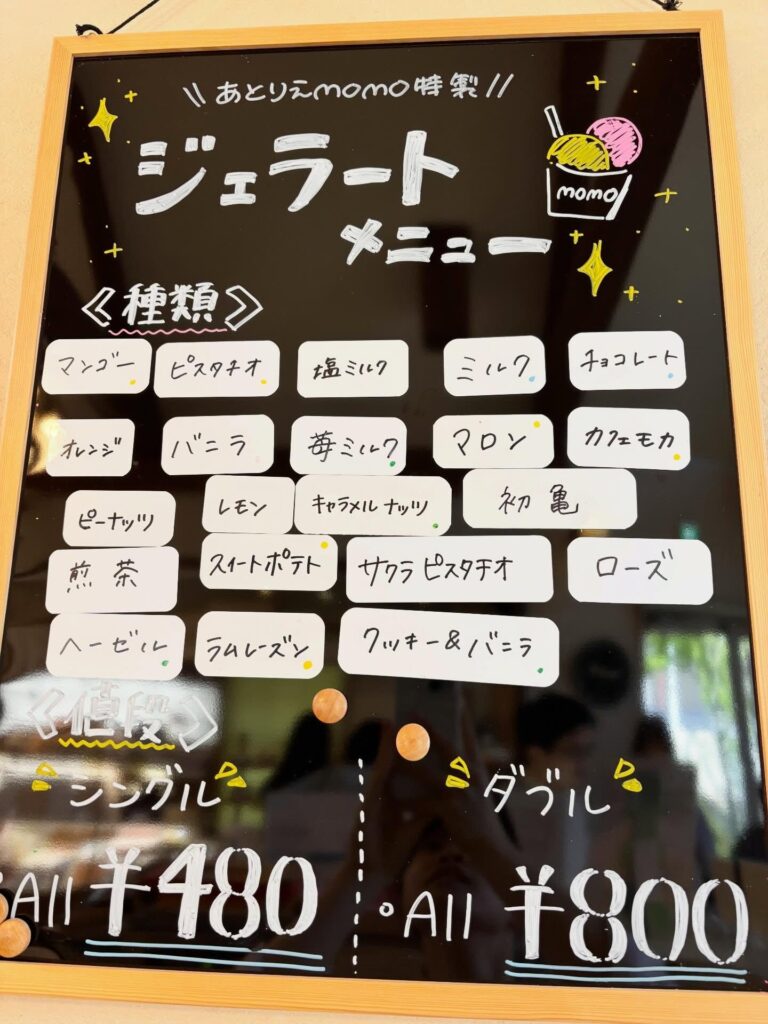 \\ あとりえmomo特製 //
ジェラート
メニュー
momo
〈種類〉
マンゴー ピスタチオ 塩ミルク ミルク チョコレート
オレンジ バニラ 苺ミルク マロン カフェモカ
ピーナッツ レモン キャラメルナッツ 初亀
煎茶 スイートポテト サクラピスタチオ ローズ
ヘーゼル ラムレーズン クッキー&バニラ
〈値段〉
シングル ダブル
・All ¥480 ・All ¥800